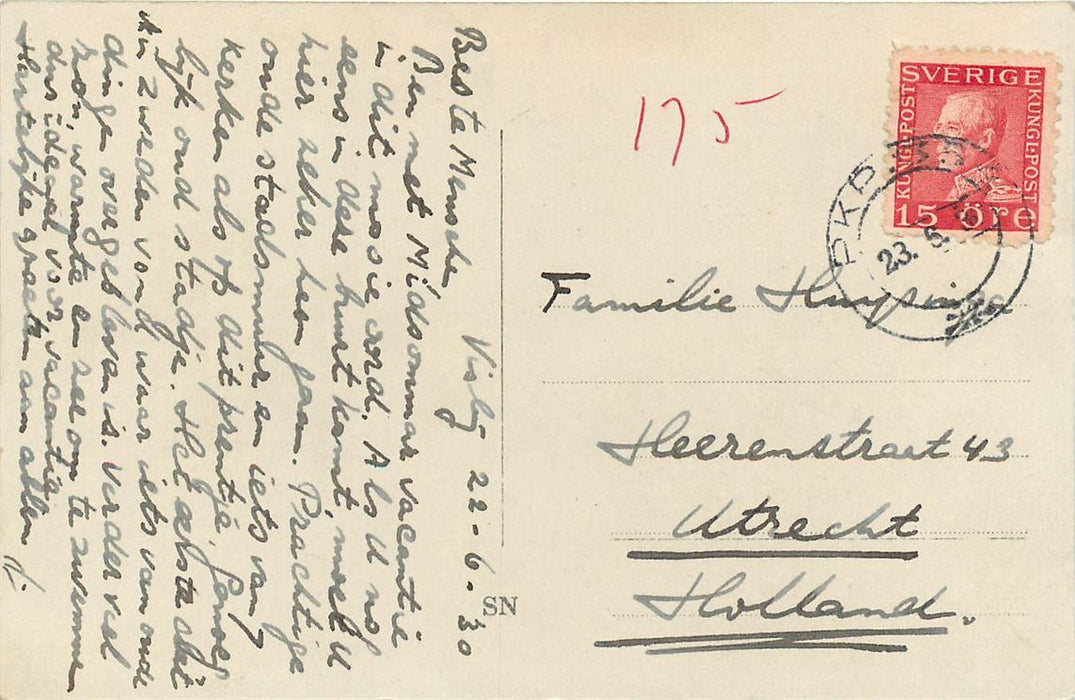 Visby 22-6-30
Beste Menschen
Ben met Midsommar vacantie
in dit mooie oord. Als U nog
eens in deze buurt komt, moet U
hier zeker heen gaan. Prachtige
oude stadsmuur en iets van 17
kerken als op dit prentje. Genoeg
lijk oud stadje. Het oelste dat
in Zweden vond waar iets van oude
dingen overgebleven is. Verder veel
zon, warmte en zee om te zwemmen
dus ideaal voor vacantie.
Hartelijke groeten aan allen
SN
175
SVERIGE
KUNGL·POST
KUNGL·POST
15 ÖRE
PKP
23. 6.
Familie Huysinga
Heerenstraat 43
Utrecht
Holland.